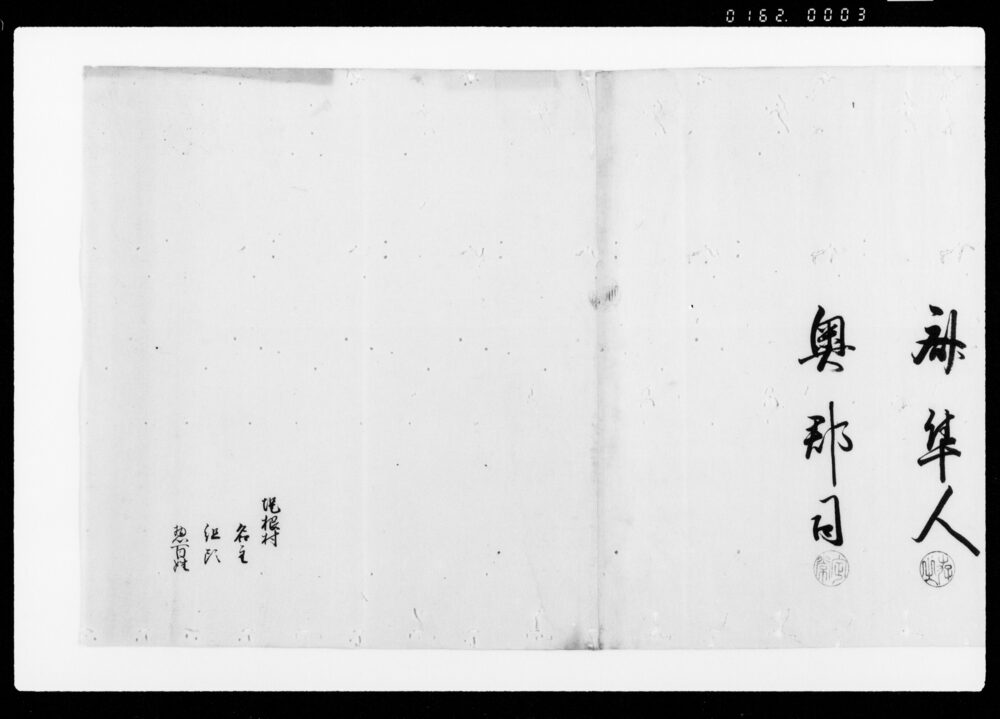 0162. 0003
隼人
奥郡司
堀根村
名主
組頭
惣百姓